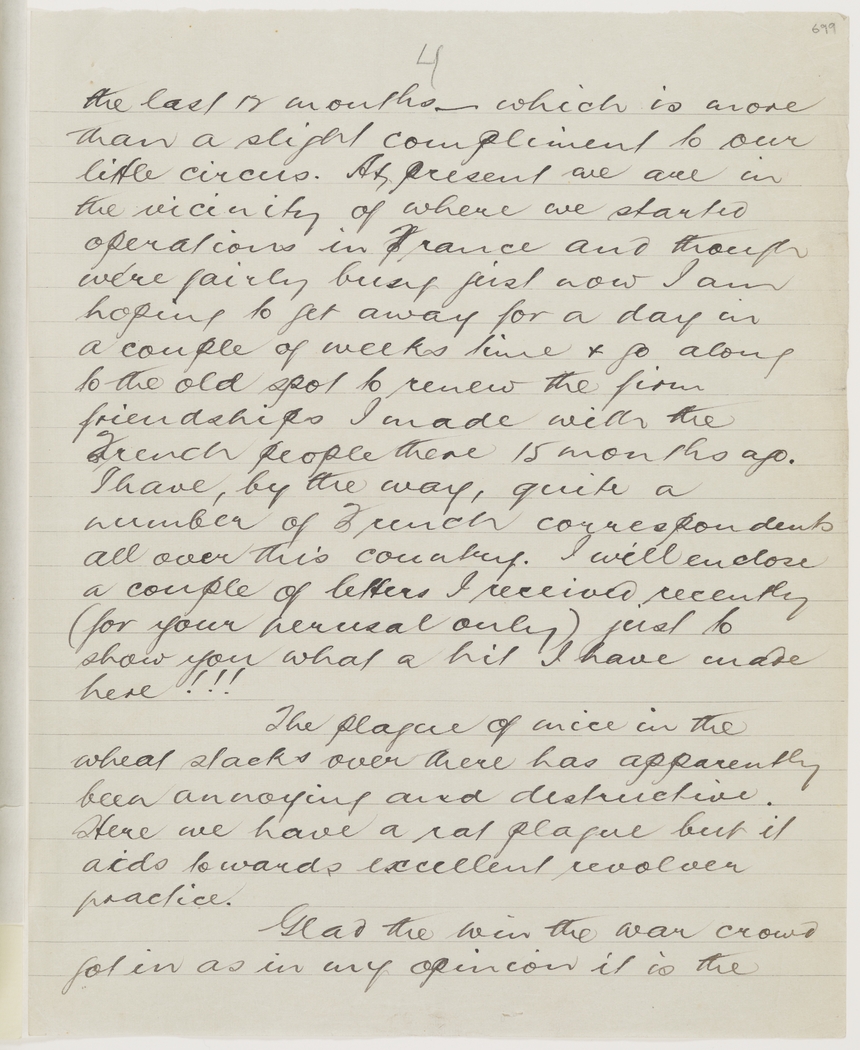 699
4
the last 12 months — which is more
than a slight compliment to our
little circus. At present we are in
the vicinity of where we started
operations in France and though
we're fairly busy just now I am
hoping to get away for a day in
a couple of weeks time & go along
to the old spot to renew the firm
friendships I made with the
French people there 15 months ago.
I have, by the way, quite a
number of French correspondents
all over this country. I will enclose
a couple of letters I received recently
(for your perusal only) just to
show you what a hit I have made
here !!!
The plague of mice in the
wheat stacks over there has apparently
been annoying and destructive.
Here we have a rat plague but it
aids towards excellent revolver
practice.
Glad the win the war crowd
got in as in my opinion it is the